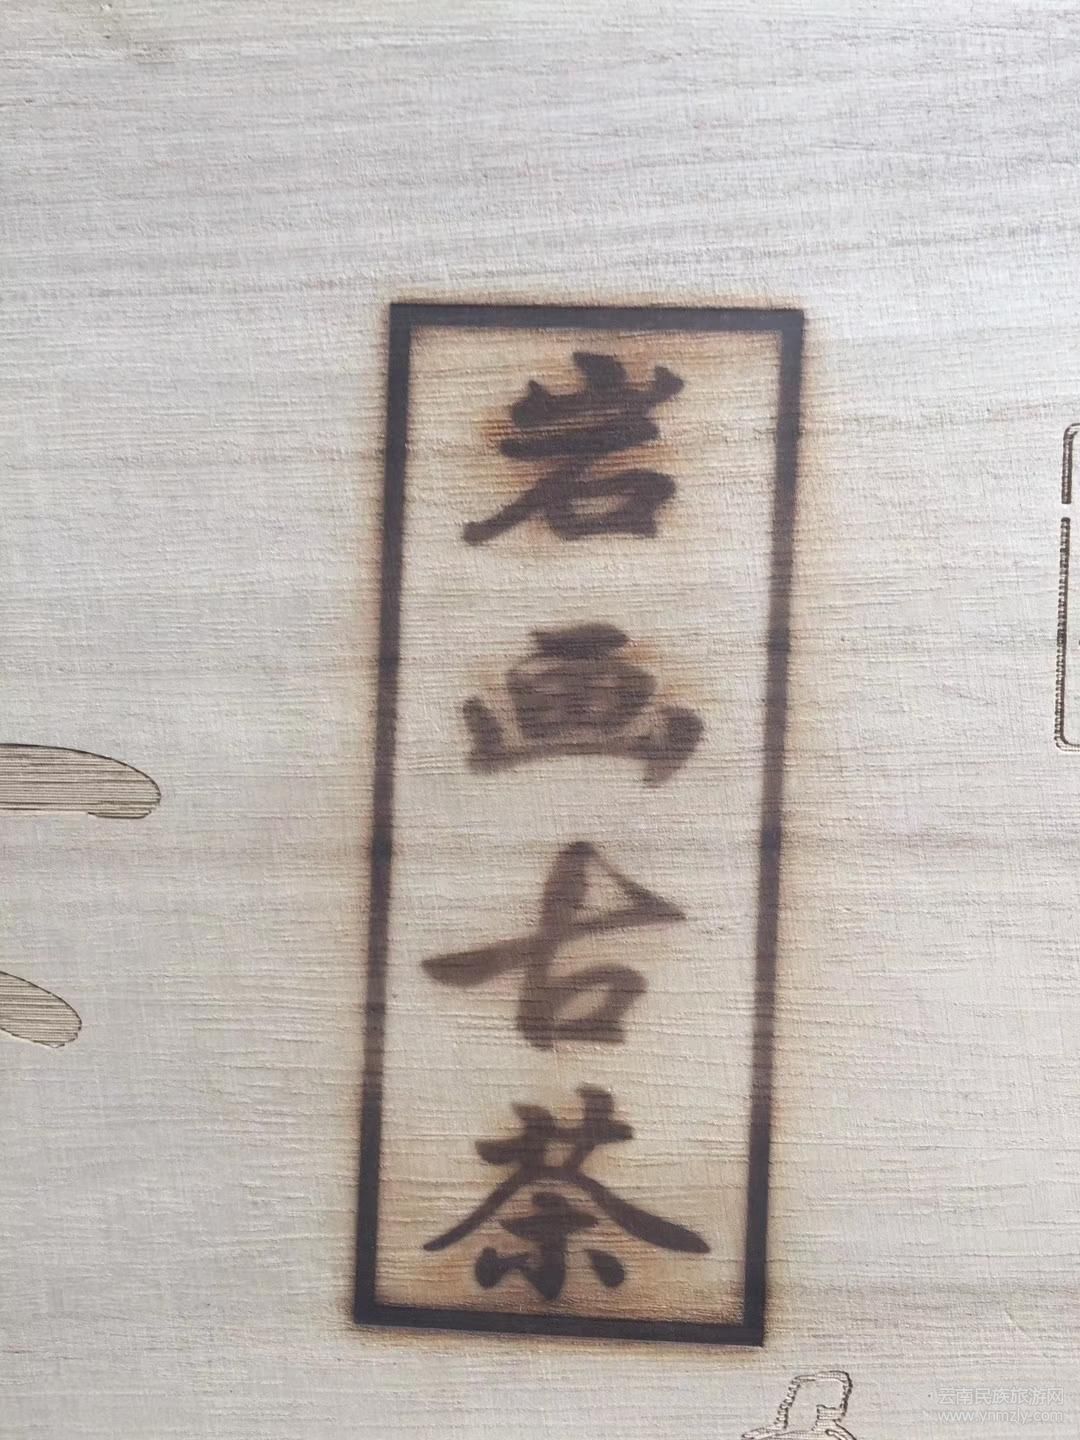 岩画古茶
云南民族旅游网
www.ynmzly.com